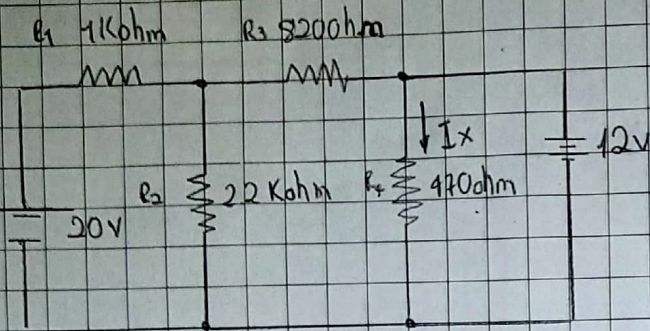 R1 1Kohm
R3 8200hm
Ix
12v
R2 22Kohm
R4 470ohm
20V